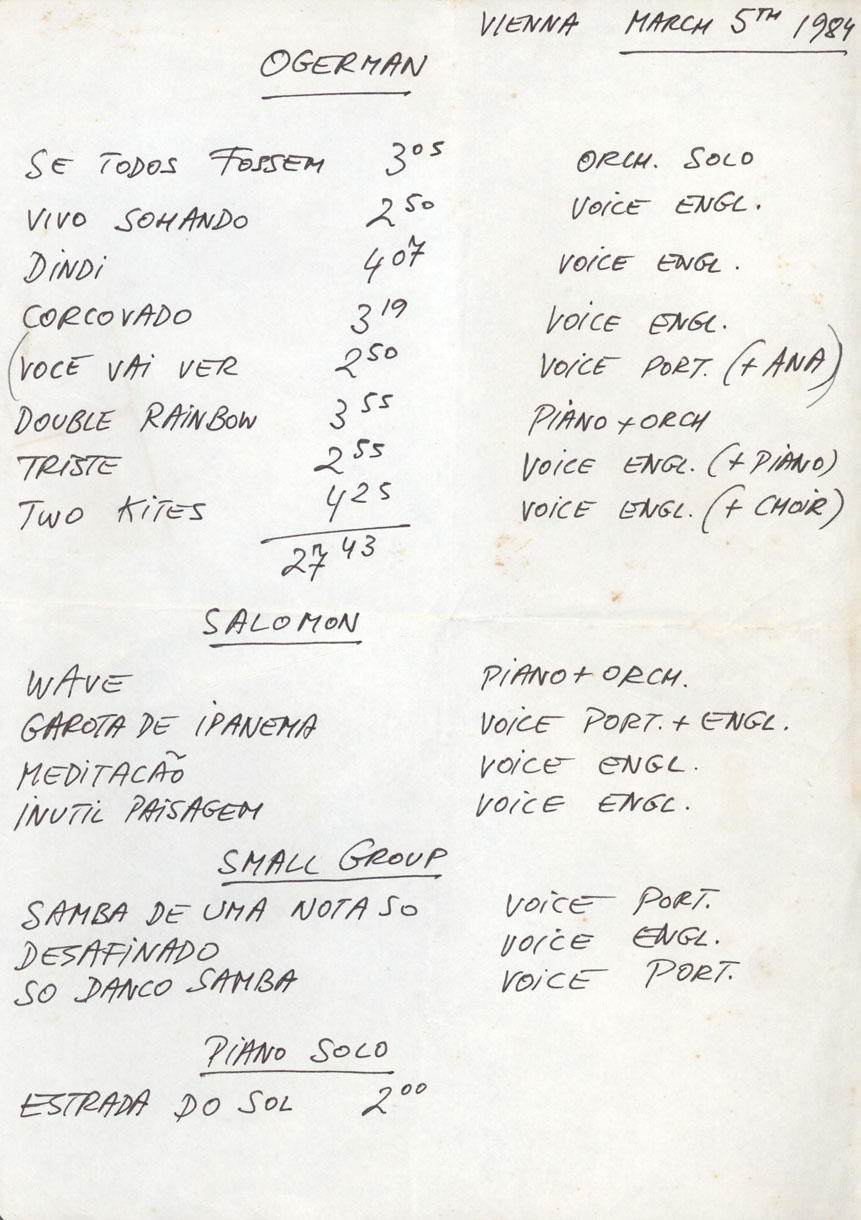 VIENNA MARCH 5TH 1984
OGERMAN
SE TODOS FOSSEM 3 05 ORCH. SOLO
VIVO SOMANDO 2 50 VOICE ENGL.
DINDI 4 07 VOICE ENGL.
CORCOVADO 3 19 VOICE ENGL.
(VOCE VAI VER 2 50 VOICE PORT. (+ ANA))
DOUBLE RAINBOW 3 55 PIANO + ORCH
TRISTE 2 55 VOICE ENGL. (+ PIANO)
TWO KITES 4 25 VOICE ENGL. (+ CHOIR)
27 43
SALOMON
WAVE PIANO + ORCH.
GAROTA DE IPANEMA VOICE PORT. + ENGL.
MEDITACÃO VOICE ENGL.
INUTIL PAISAGEM VOICE ENGL.
SMALL GROUP
SAMBA DE UMA NOTA SO VOICE PORT.
DESAFINADO VOICE ENGL.
SO DANCO SAMBA VOICE PORT.
PIANO SOLO
ESTRADA DO SOL 2 00